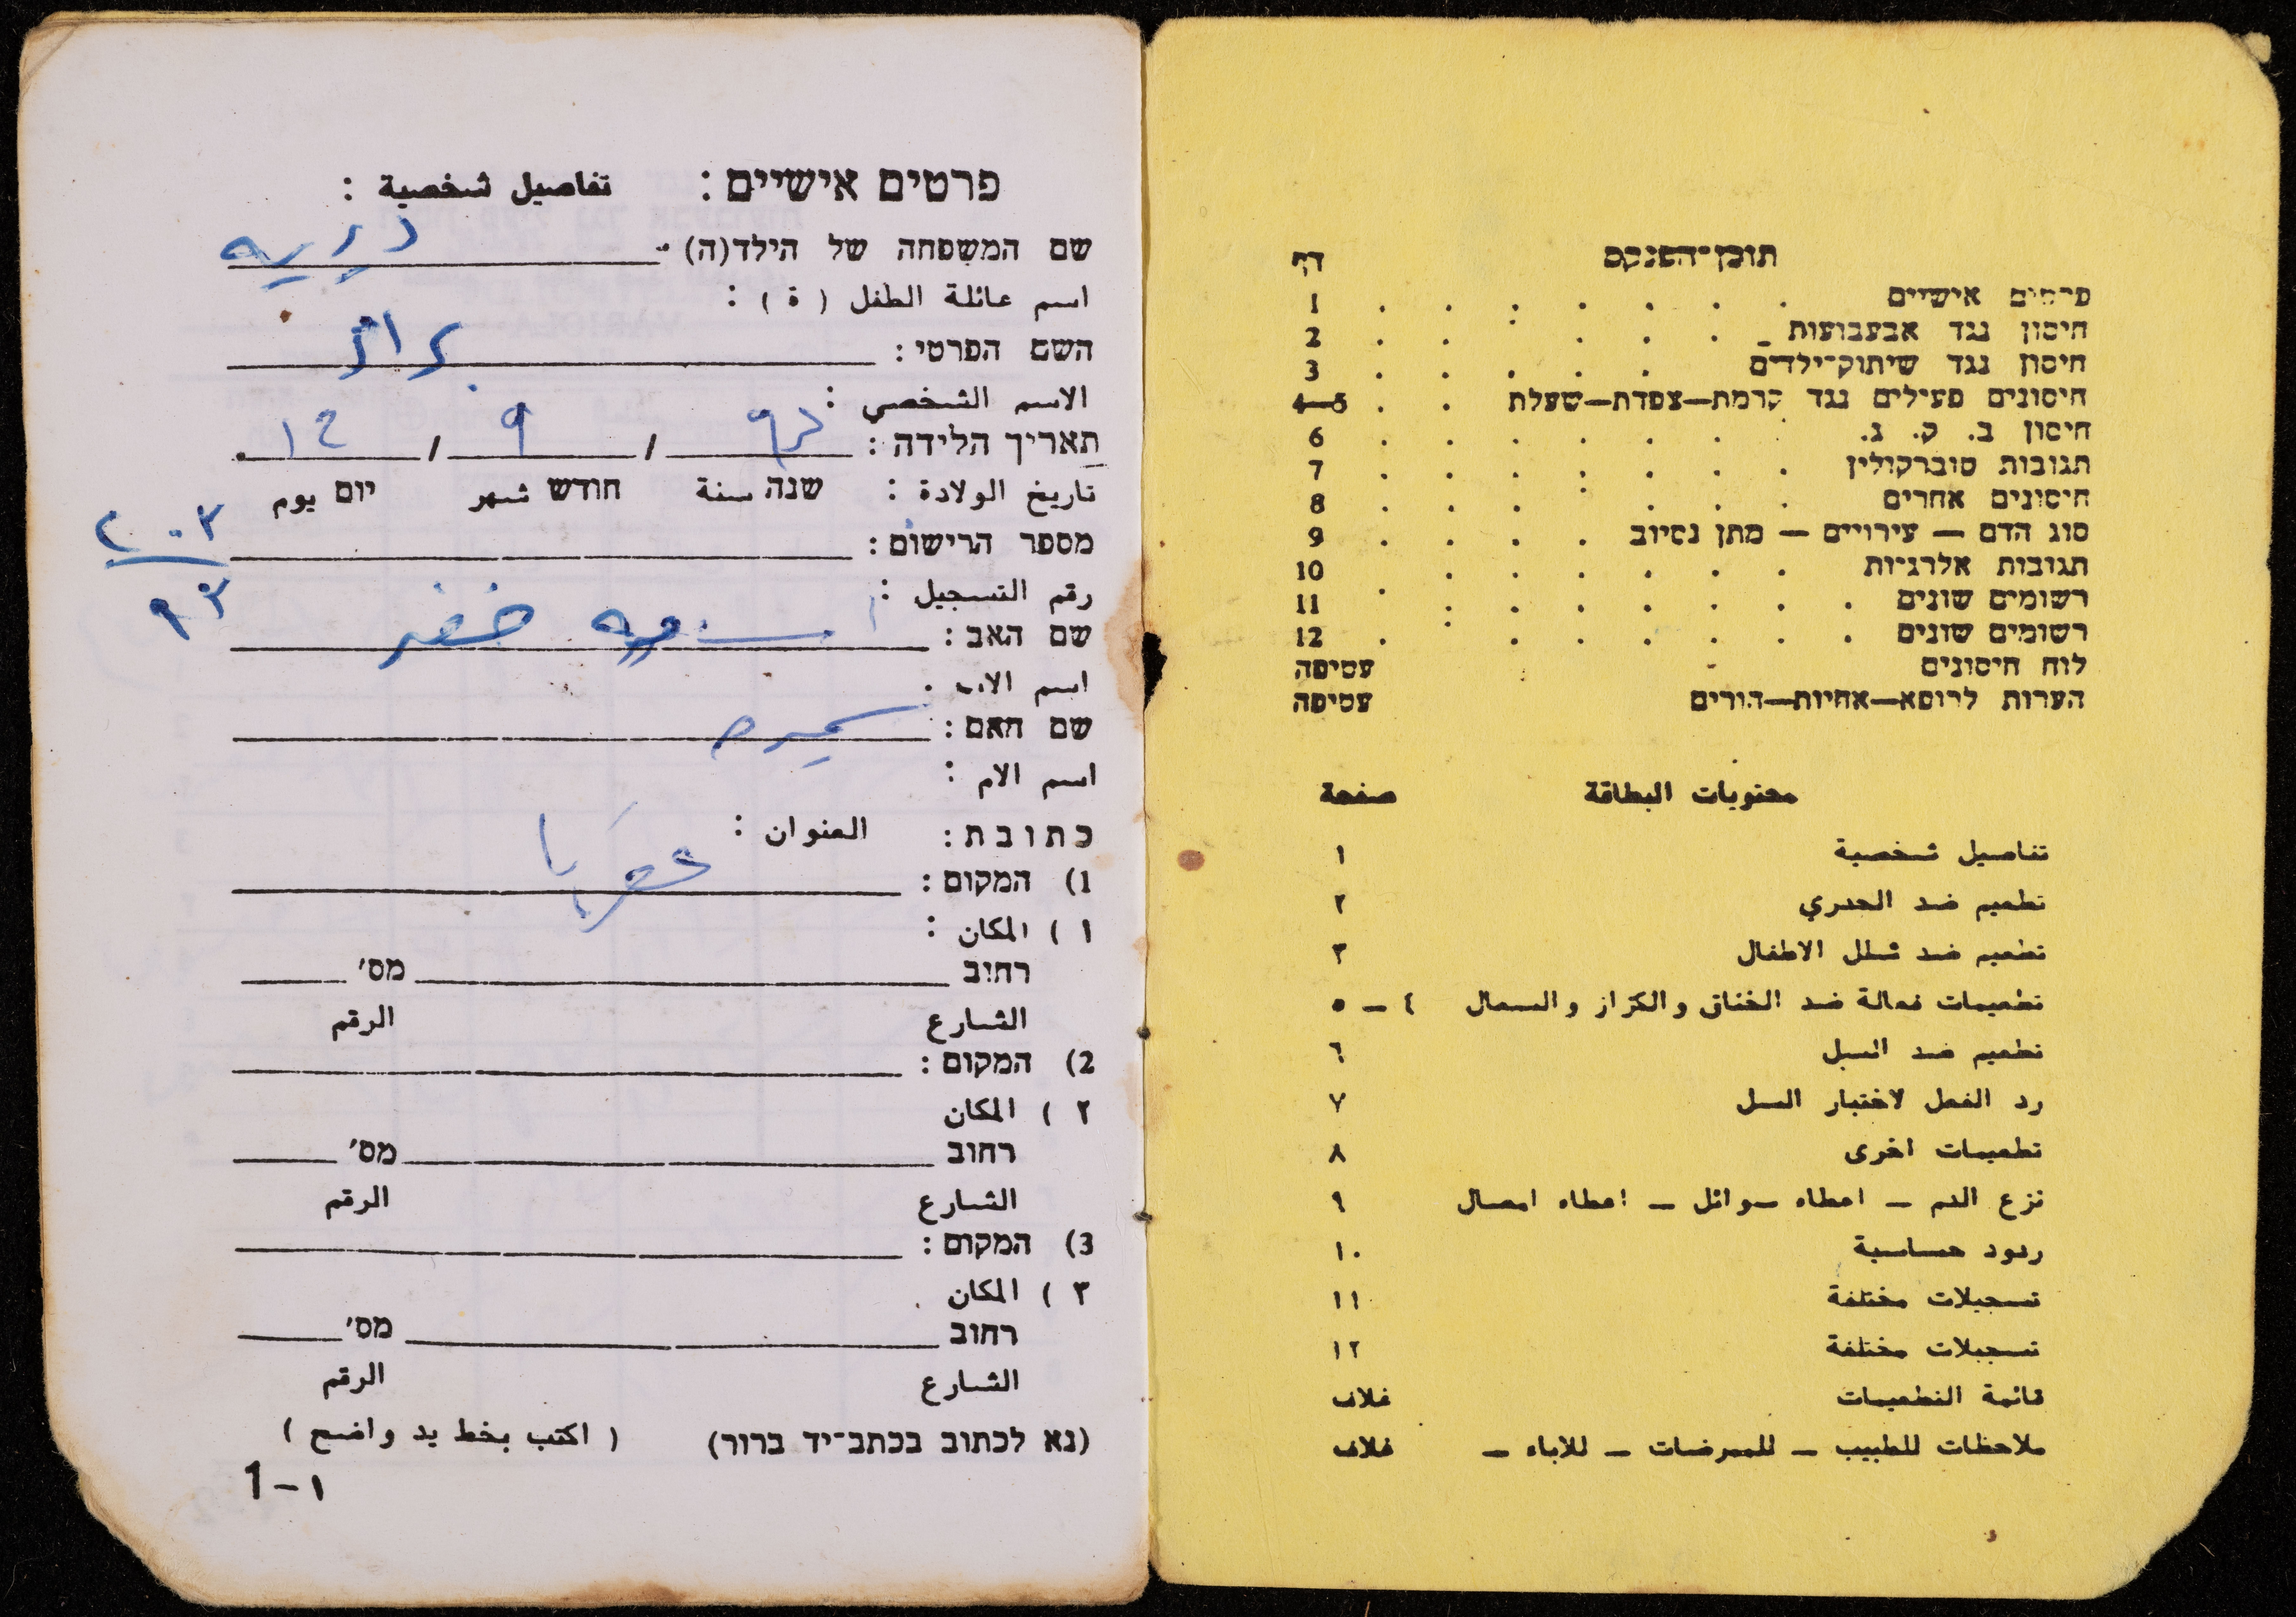 תוכן־הפנקס דף
פרטים אישיים . . . . . . . 1
חיסון נגד אבעבועות . . . . . . 2
חיסון נגד שיתוק־ילדים . . . . . 3
חיסונים פעילים נגד קרמת—צפדת—שעלת . . 4—5
חיסון ב. ק. ג. . . . . . . 6
תגובות טוברקולין . . . . . . . 7
חיסונים אחרים . . . . . . . 8
סוג הדם — עירויים — מתן נסיוב . . . . 9
תגובות אלרגיות . . . . . . 10
רשומים שונים . . . . . . . . 11
רשומים שונים . . . . . . . . 12
לוח חיסונים עטיפה
הערות לרופא—אחיות—הורים עטיפה
محتويات البطاقة صفحة
تفاصيل شخصية ١
تطعيم ضد الجدري ٢
تطعيم ضد شلل الاطفال ٣
تطعيمات فعالة ضد الخناق والكزاز والسعال ٤ – ٥
تطعيم ضد السل ٦
رد الفعل لاختبار السل ٧
تطعيمات اخرى ٨
نزع الدم – اعطاء سوائل – اعطاء امصال ٩
ردود حساسية ١٠
تسجيلات مختلفة ١١
تسجيلات مختلفة ١٢
قائمة التطعيمات غلاف
ملاحظات للطبيب – للممرضات – للاباء – غلاف
פרטים אישיים : تفاصيل شخصية :
שם המשפחה של הילד(ה)
اسم عائلة الطفل ( ة ) :
השם הפרטי :
الاسم الشخصي :
תאריך הלידה : ٩٣ / ٩ / 12
تاريخ الولادة : שנה سنة חודש شهر יום يوم
מספר הרישום : ٢٠٣
رقم التسجيل : ٩٣
שם האב : خضر
اسم الاب :
שם האם : سميره
اسم الام :
כתובת : العنوان :
1) המקום : عقربا
١ ) المكان :
רחוב מס׳
الشارع الرقم
2) המקום :
٢ ) المكان
רחוב מס׳
الشارع الرقم
3) המקום :
٣ ) المكان
רחוב מס׳
الشارع الرقم
(נא לכתוב בכתב־יד ברור) ( اكتب بخط يد واضح )
1 – ١